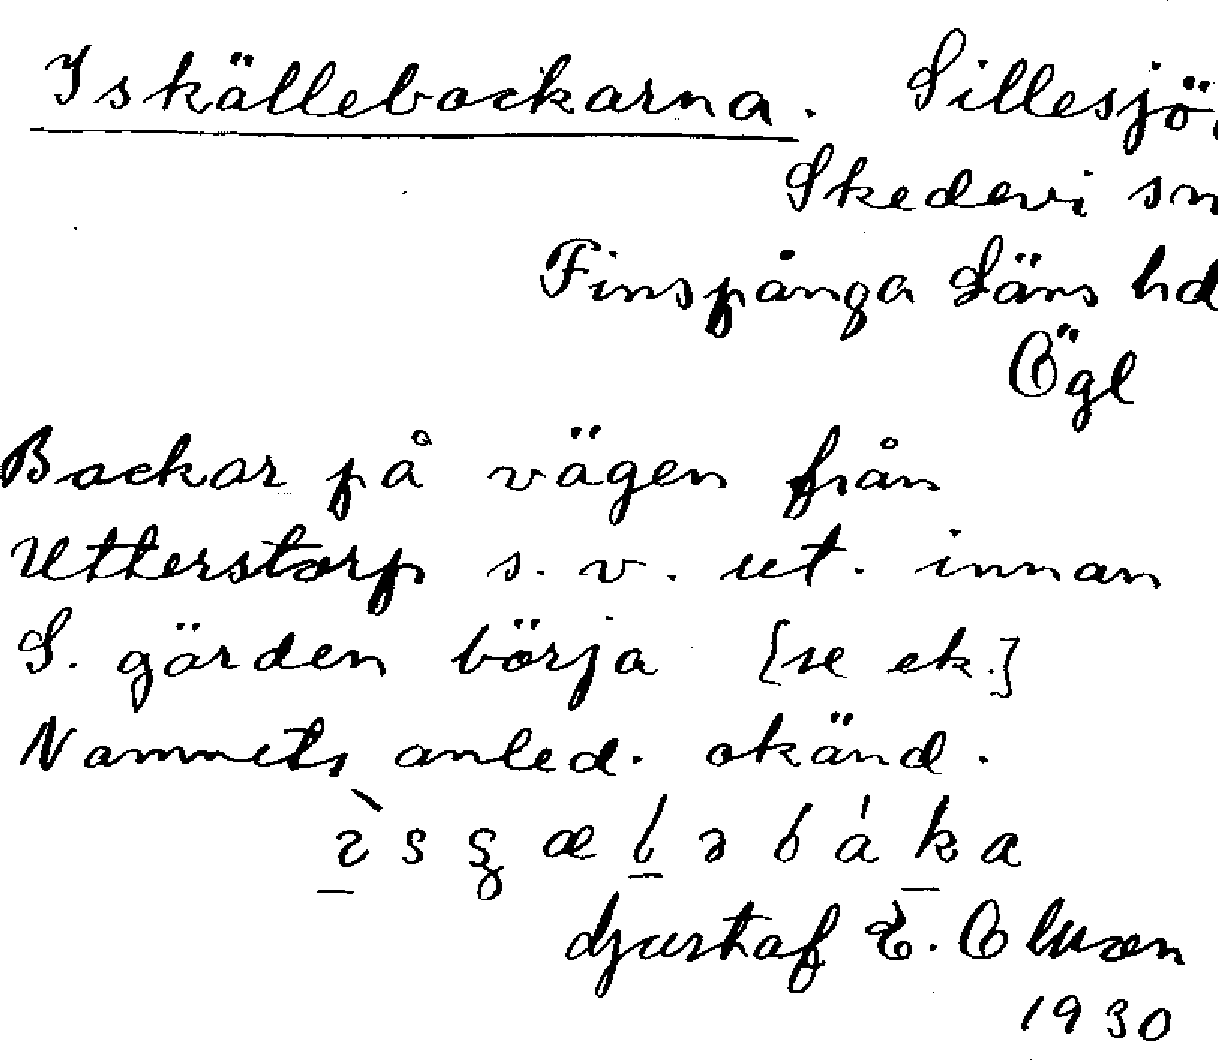 Iskällebackarna. Sillesjö,
Skedevi sn
Finspånga Läns hd
Ögl
Backar på vägen från
Utterstorp s.v. ut. innan
S. gärden börja [se ek.]
Namnets anled. okänd.
Gustaf E. Olsson
1930